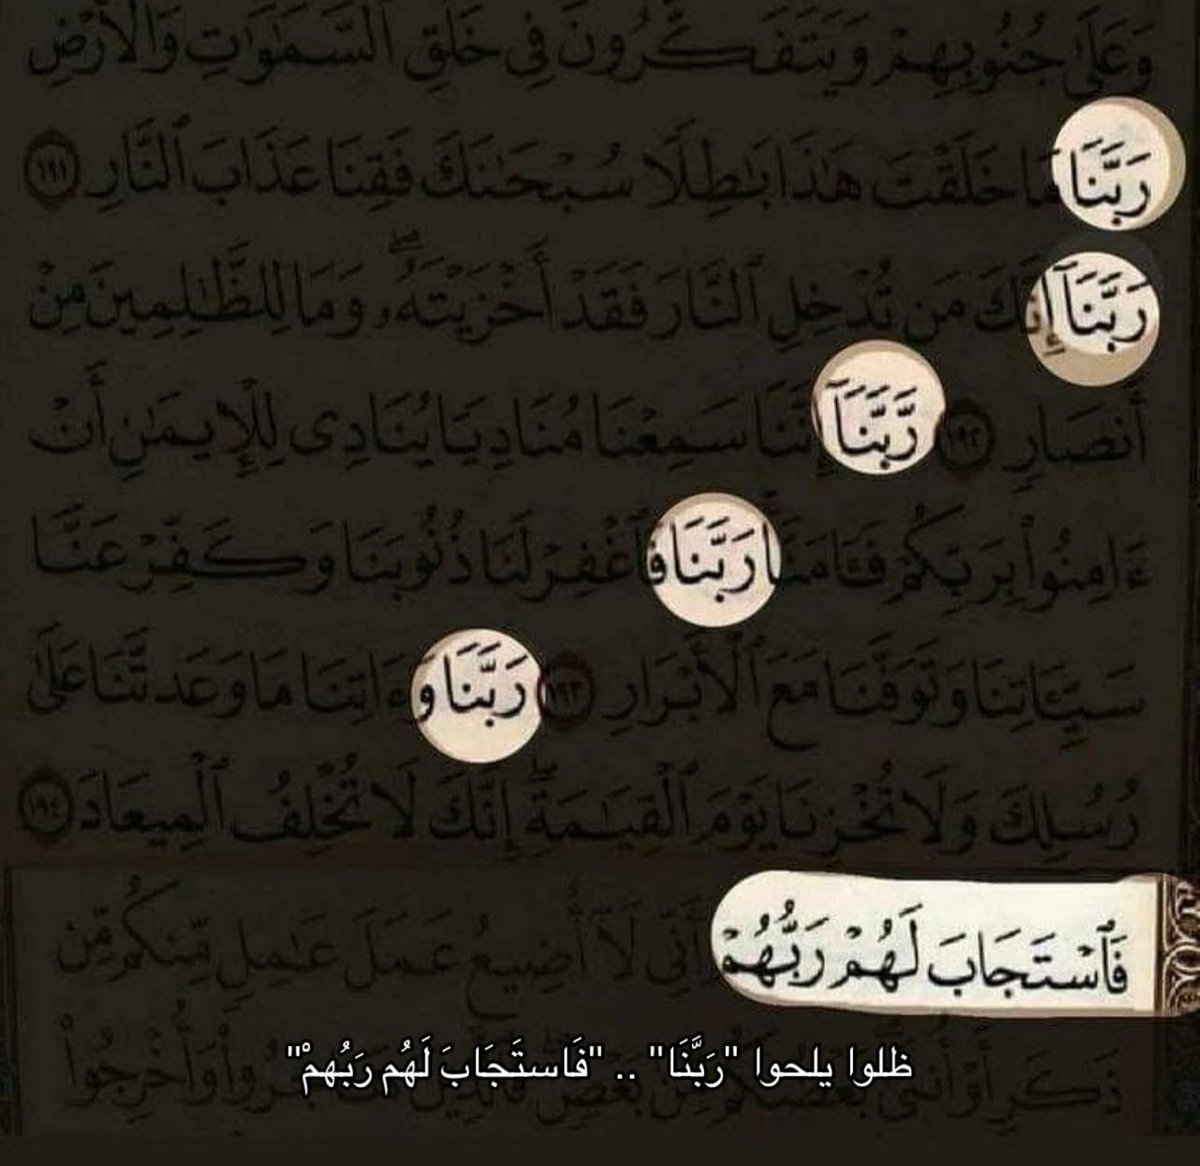 وَعَلَىٰ جُنُوبِهِمْ وَيَتَفَكَّرُونَ فِي خَلْقِ السَّمَٰوَٰتِ وَالْأَرْضِ
رَبَّنَا مَا خَلَقْتَ هَٰذَا بَٰطِلًا سُبْحَٰنَكَ فَقِنَا عَذَابَ ٱلنَّارِ ١٩١
رَبَّنَآ إِنَّكَ مَن تُدْخِلِ ٱلنَّارَ فَقَدْ أَخْزَيْتَهُۥ ۖ وَمَا لِلظَّٰلِمِينَ مِنْ
أَنصَارٍ ١٩٢ رَّبَّنَآ إِنَّنَا سَمِعْنَا مُنَادِيًا يُنَادِى لِلْإِيمَٰنِ أَنْ
ءَامِنُوا۟ بِرَبِّكُمْ فَـَٔامَنَّا رَبَّنَا فَٱغْفِرْ لَنَا ذُنُوبَنَا وَكَفِّرْ عَنَّا
سَيِّـَٔاتِنَا وَتَوَفَّنَا مَعَ ٱلْأَبْرَارِ ١٩٣ رَبَّنَا وَءَاتِنَا مَا وَعَدتَّنَا عَلَىٰ
رُسُلِكَ وَلَا تُخْزِنَا يَوْمَ ٱلْقِيَٰمَةِ ۖ إِنَّكَ لَا تُخْلِفُ ٱلْمِيعَادَ ١٩٤
فَٱسْتَجَابَ لَهُمْ رَبُّهُمْ أَنِّى لَآ أُضِيعُ عَمَلَ عَٰمِلٍ مِّنكُم مِّن
ذَكَرٍ أَوْ أُنثَىٰ ۖ بَعْضُكُم مِّنۢ بَعْضٍ وَأُخْرِجُوا۟
ظلوا يلحوا "رَبَّنَا" .. "فَاستَجَابَ لَهُم رَبُهمْ"